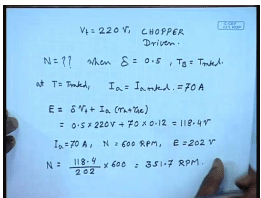 V_t = 220 V, CHOPPER
Driven.
N = ?? when δ = 0.5, T_B = T_rated.
at T = T_rated, I_a = I_a rated. = 70 A
E = δ V_t + I_a (r_a + r_se)
= 0.5 × 220V + 70 × 0.12 = 118.4V
I_a = 70 A, N = 600 RPM, E = 202 V
N = 118.4 / 202 × 600 = 351.7 RPM.